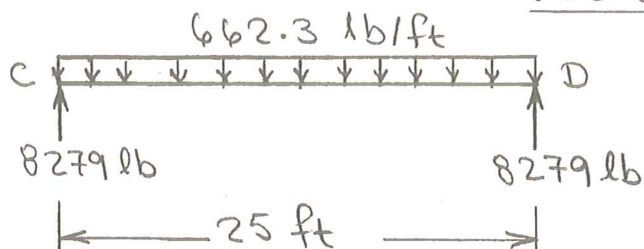 662.3 lb/ft
C D
8279 lb 8279 lb
25 ft